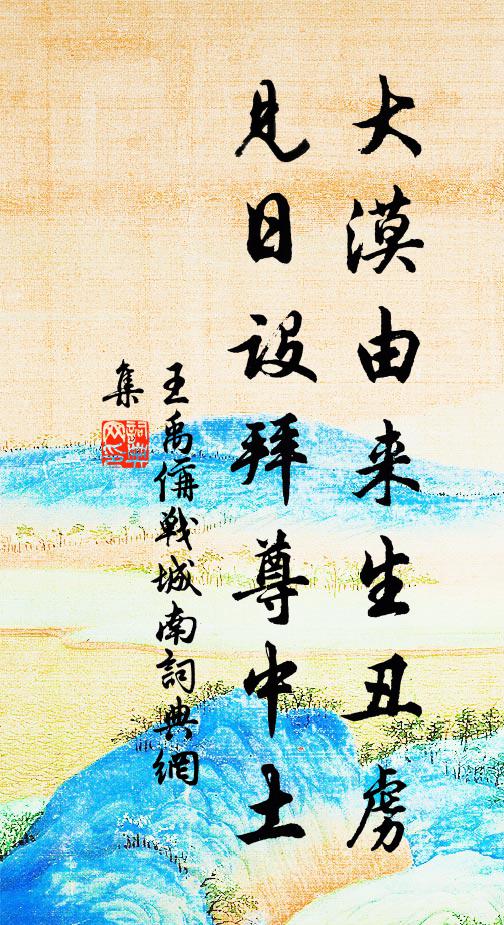 大漠由来生丑虏
见日设拜尊中土
王禹偁戰城南詞典網
集